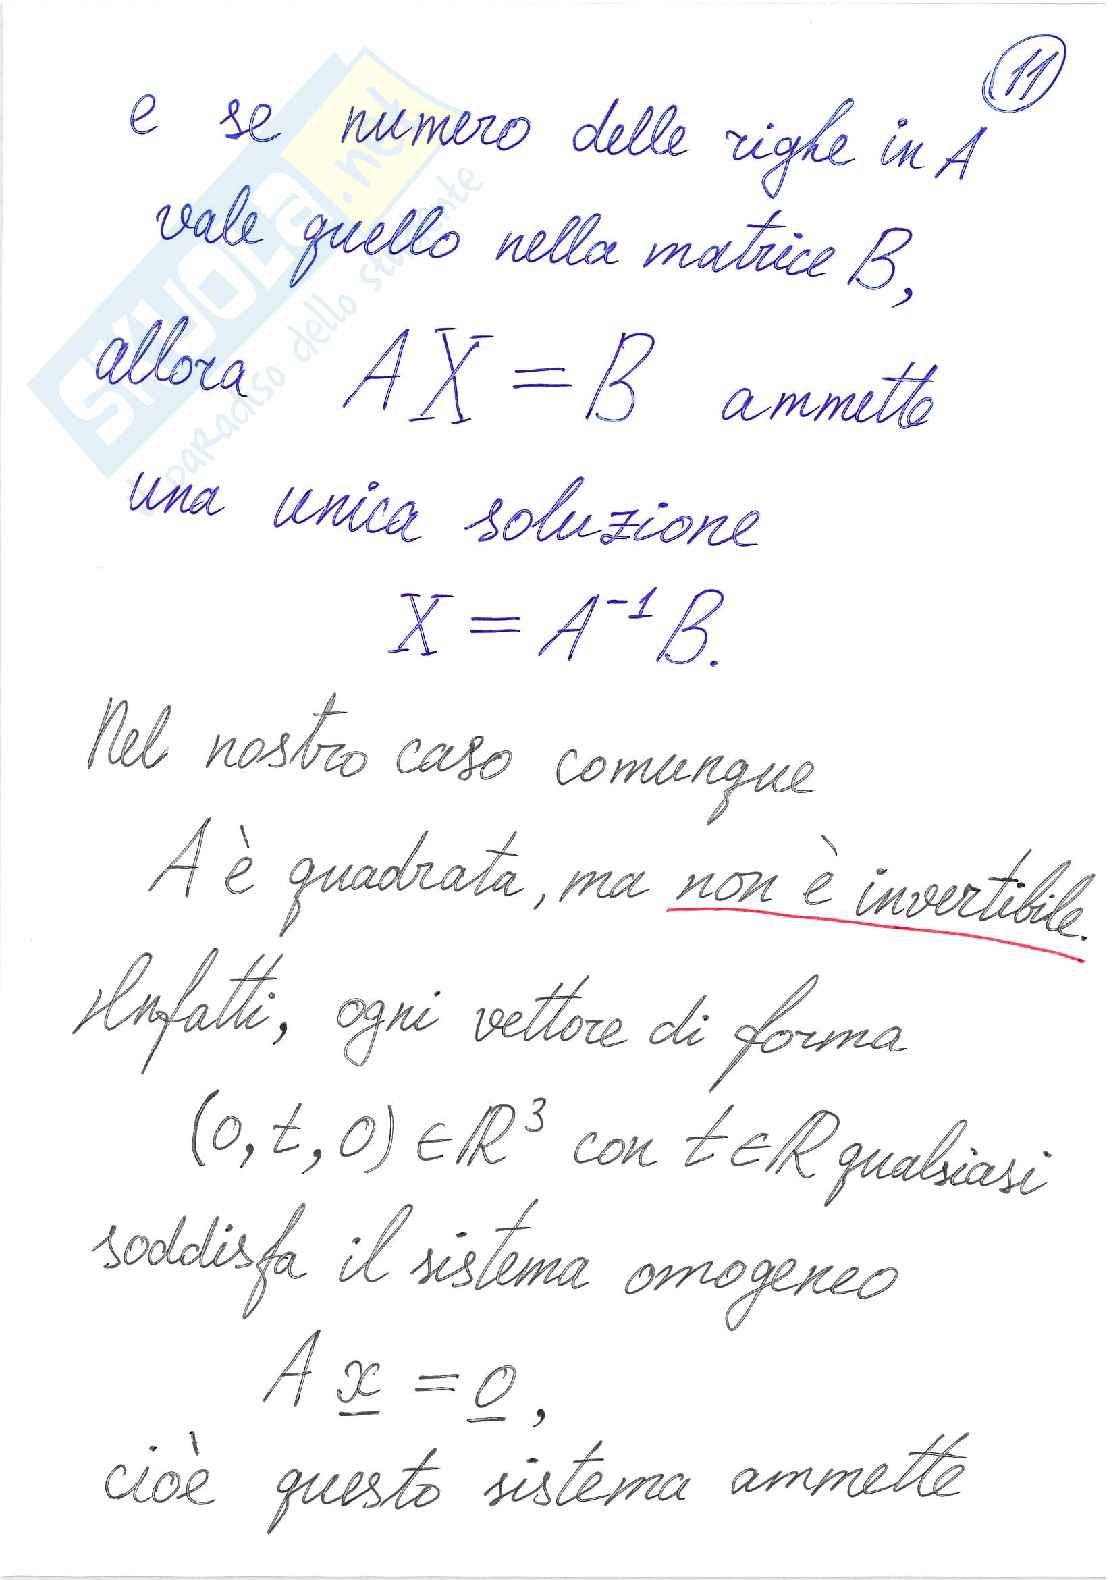 11
e se numero delle righe in A
vale quello nella matrice B,
allora AX = B ammette
una unica soluzione
X = A⁻¹B.
Nel nostro caso comunque
A è quadrata, ma non è invertibile.
Infatti, ogni vettore di forma
(0, t, 0) ∈ ℝ³ con t ∈ ℝ qualsiasi
soddisfa il sistema omogeneo
A x = 0,
cioè questo sistema ammette
SKUOLA.net
il paradiso dello studente